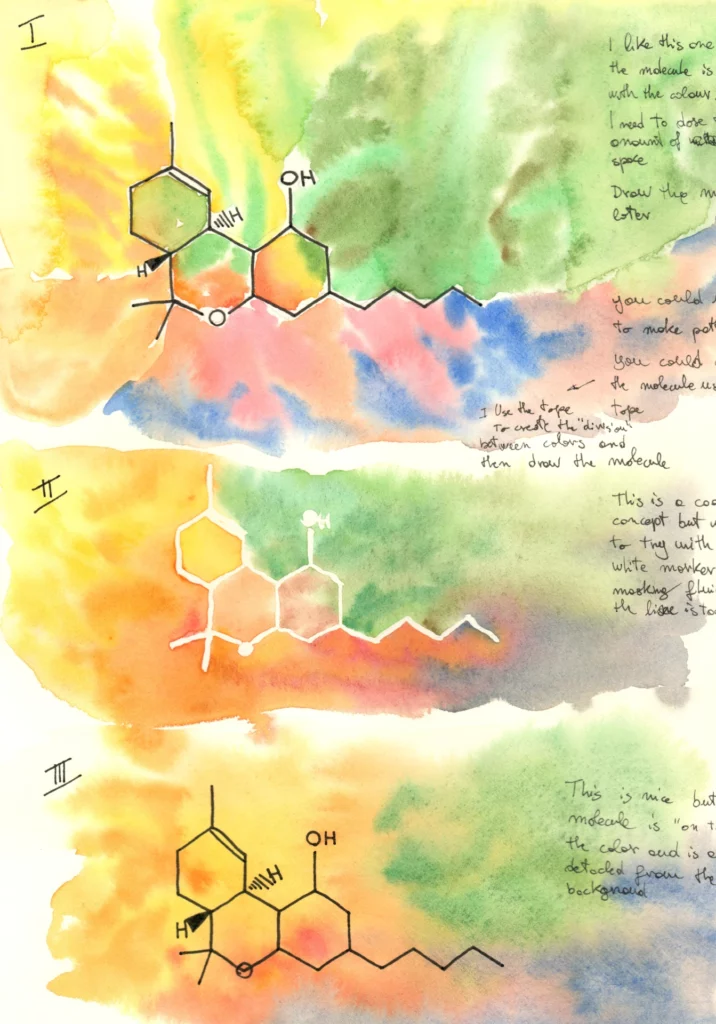 I
I like this one
the molecule is
with the colour
I need to dose
amount of
space
Draw the
later
OH
H
H
O
you could
to make
you could
the molecule
tape
I Use the tape
to create the "division"
between colors and
then draw the molecule
II
This is a
concept but
to try with
white marker
masking
the line is
OH
O
III
This is nice but
molecule is "on
the color and is
detached from the
background
OH
H
H
O